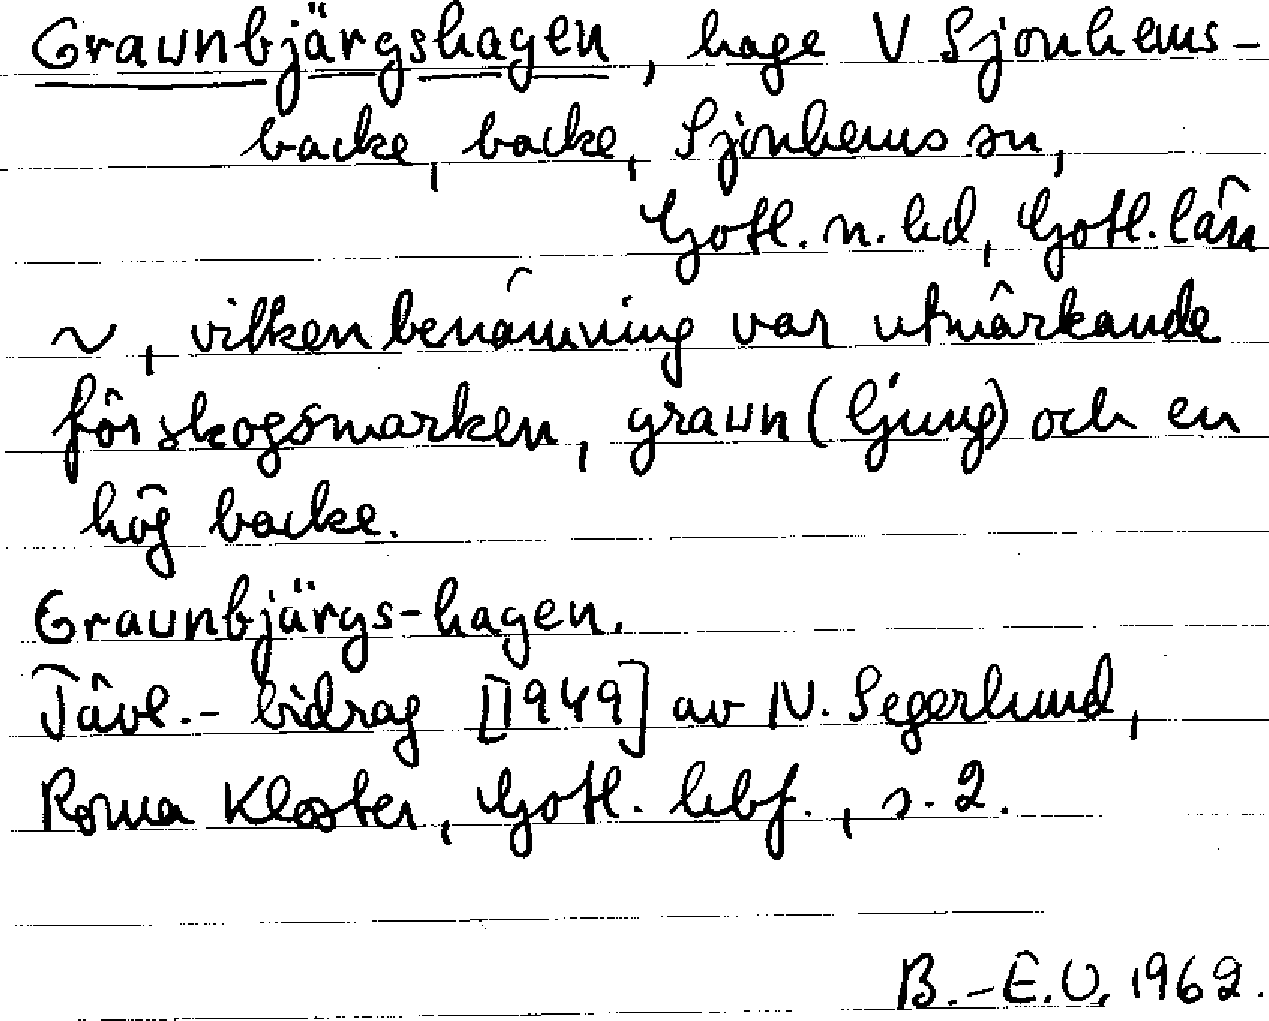 Graunbjärgshagen, hage V Sjonhems-
backe, backe, Sjonhems sn,
Gotl. n. hd, Gotl. län
~, vilken benämning var utmärkande
för skogsmarken, graun (ljung) och en
hög backe.
Graunbjärgs-hagen.
Tävl.-bidrag [1949] av N. Segerlund,
Roma Kloster, Gotl. hbf., s. 2.
B.-E.U. 1962.